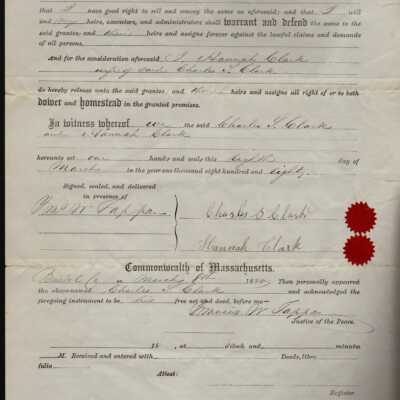 that I have good right to sell and convey the same as aforesaid; and that I will
and my heirs, executors, and administrators shall warrant and defend the same to the
said grantee; and their heirs and assigns forever against the lawful claims and demands
of all persons.
And for the consideration aforesaid I Hannah Clark
wife of said Charles S. Clark
do hereby release unto the said grantee, and heirs and assigns all right of or to both
dower and homestead in the granted premises.
In witness whereof we the said Charles S. Clark
and Hannah Clark
hereunto set our hands and seals this eighth day of
March in the year one thousand eight hundred and eighty.
Signed, sealed, and delivered
in presence of
W Tappan
Charles S Clark
Hannah Clark
Commonwealth of Massachusetts.
March 8th 1880. Then personally appeared
the abovenamed Charles S. Clark and acknowledged the
foregoing instrument to be his free act and deed, before me—
W. Tappan
Justice of the Peace.
18 , at o'clock and minutes
M. Received and entered with Deeds, libro
folio
Attest:
Register